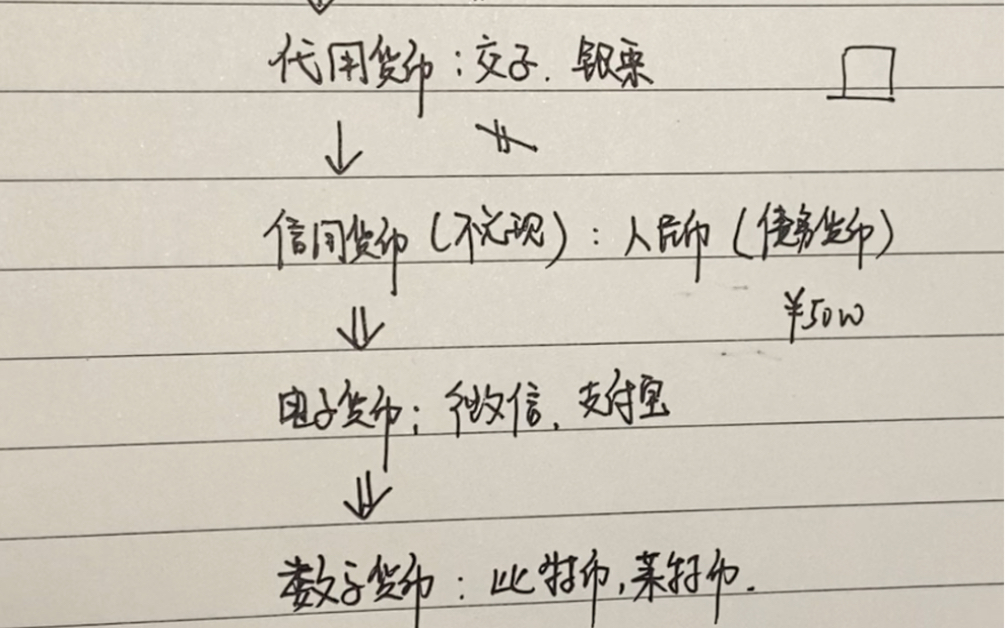 代用货币：交子. 银票
信用货币（不兑现）：人民币（债务货币）
¥50W
电子货币：微信、支付宝
数字货币：比特币,莱特币.